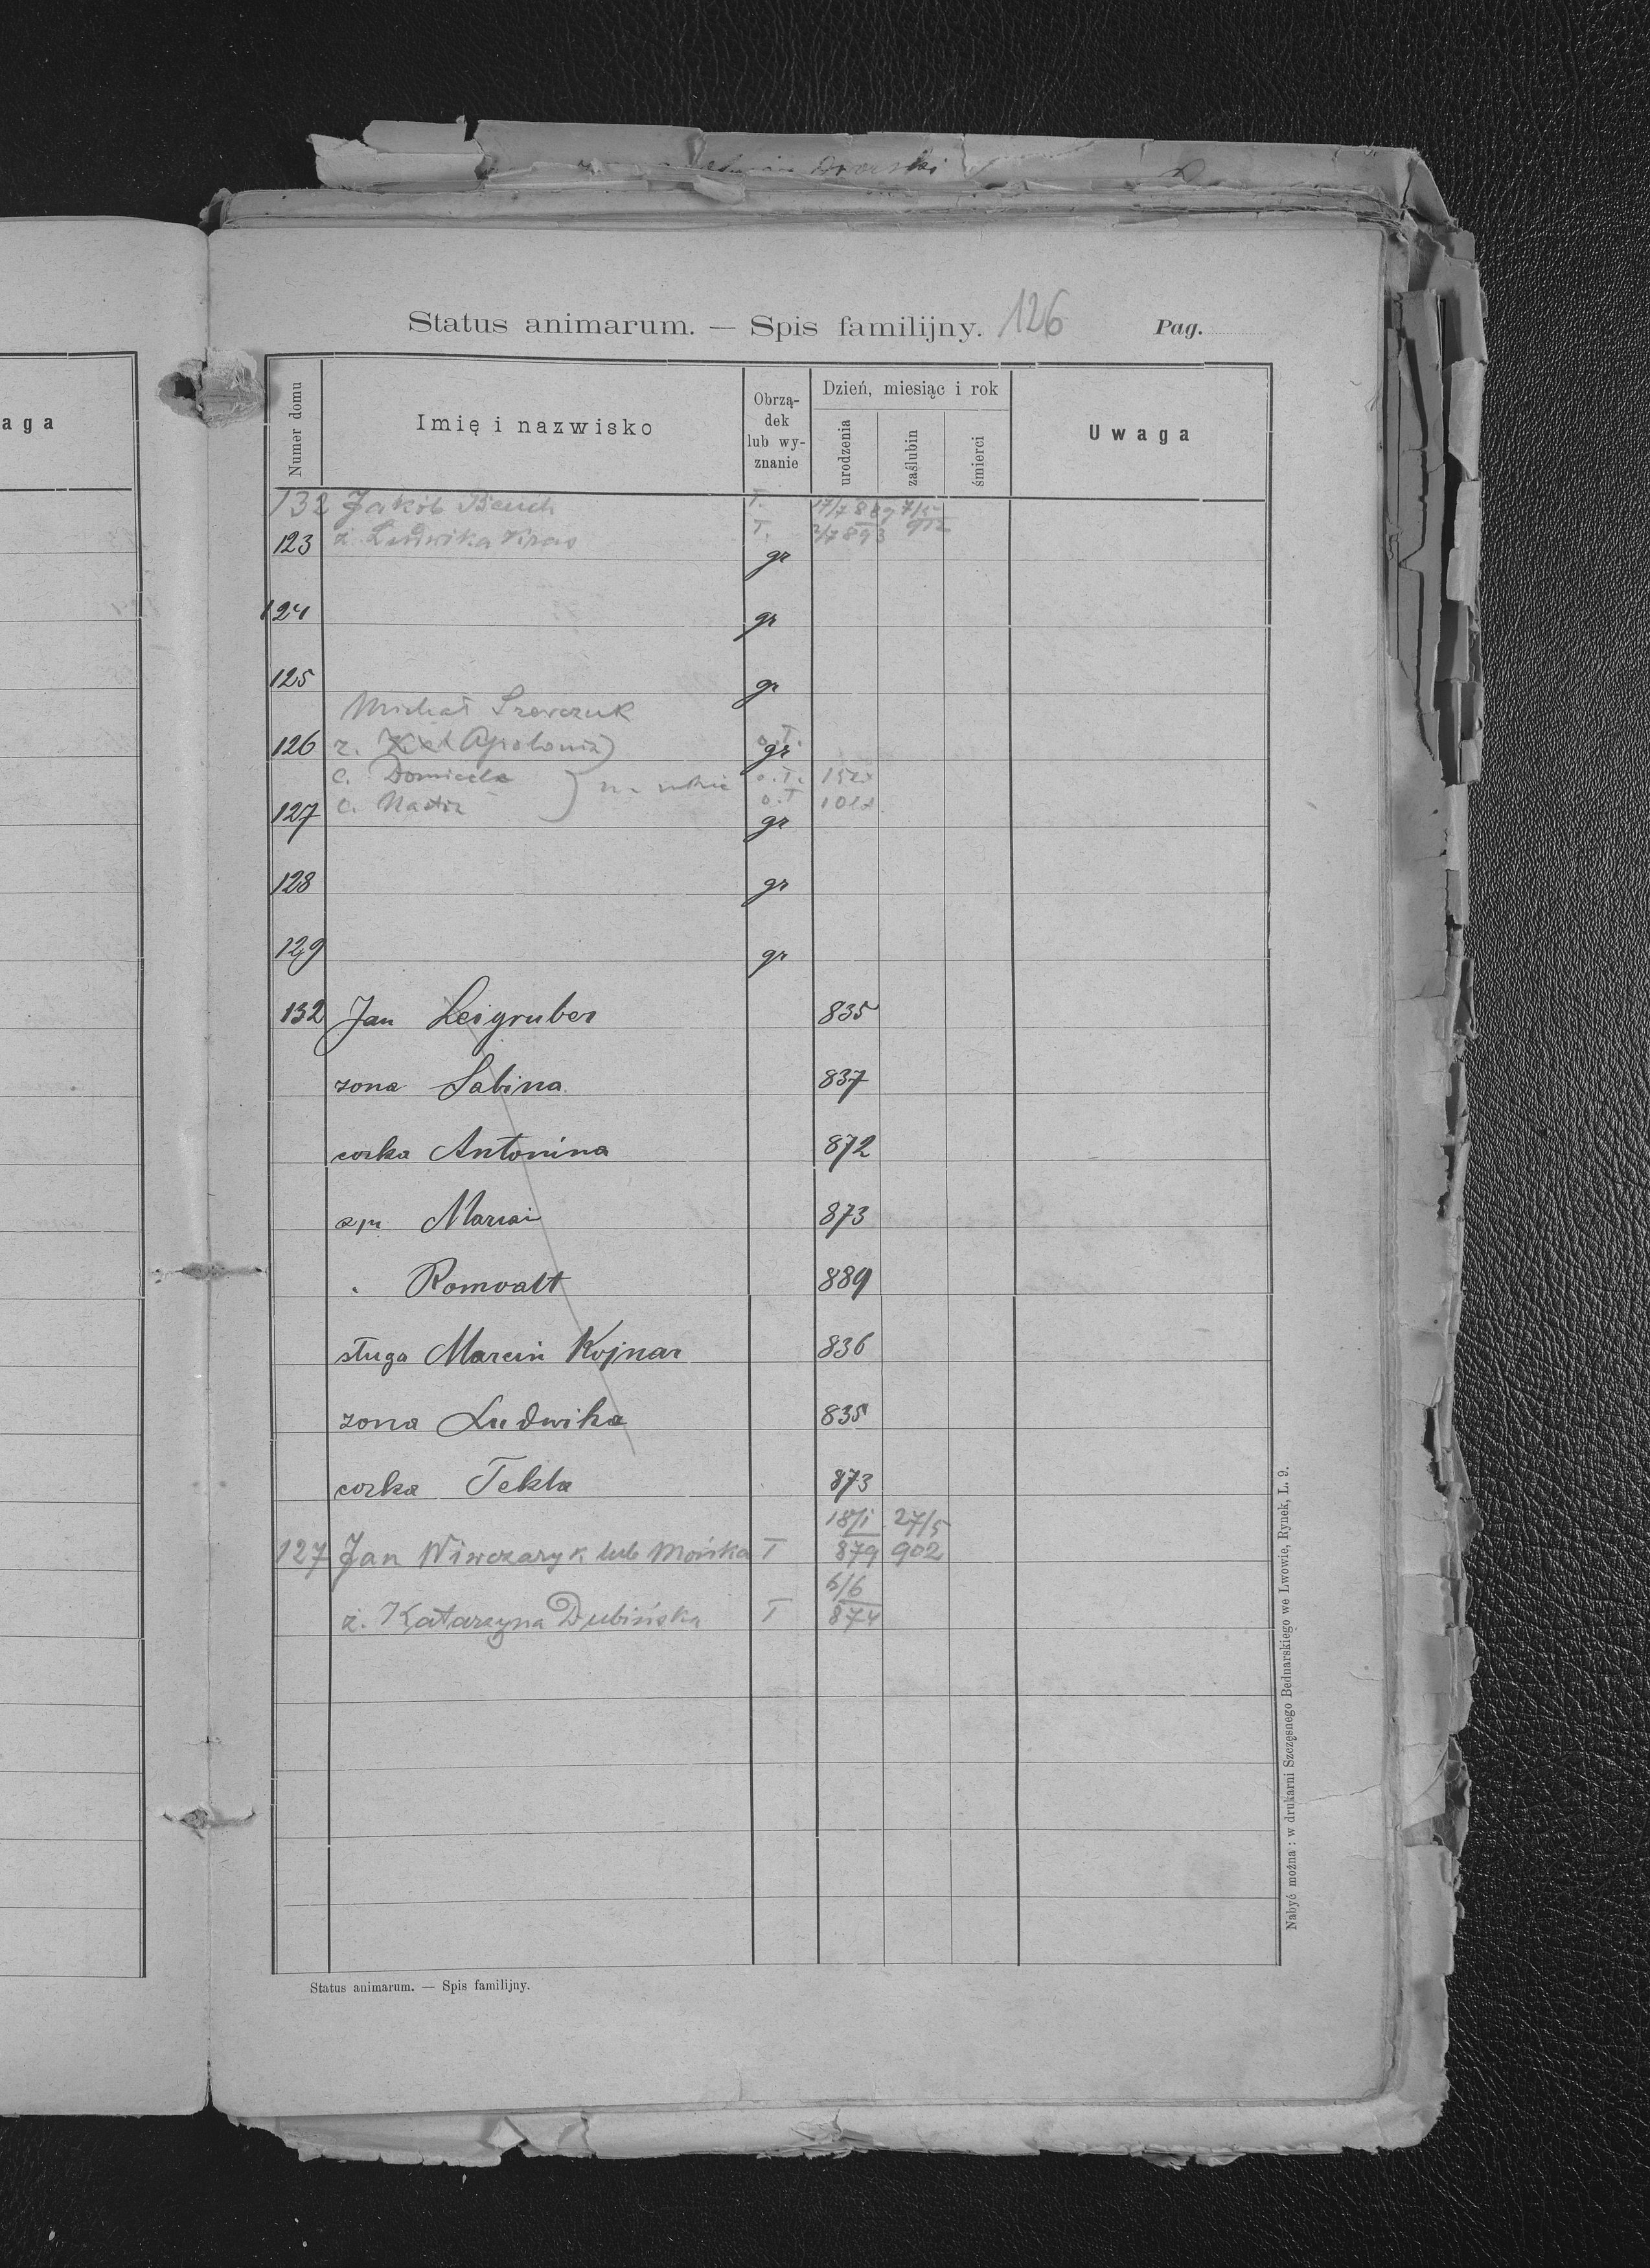 Dworski
Status animarum. — Spis familijny. 126 Pag.
aga
Numer domu
Imię i nazwisko
Obrzą-
dek
lub wy-
znanie
Dzień, miesiąc i rok
urodzenia
zaślubin
śmierci
Uwaga
132 Jakób T. 17/7 889 7/5
912
123 ż. Ludwika Kras T. 2/7 893
gr
124 gr
125 gr
Michał Szewczuk
126 ż. Apolonia o.T.
gr
c. Domicela o.T. 15
c. Nastia o.T 10
127 gr
128 gr
129 gr
132 Jan Leigruber 835
zona Sabina 837
corka Antonina 872
syn Marcin 873
" Romualt 889
sługa Marcin Kojnar 836
zona Ludwika 835
corka Tekla 873
18/1 27/5
127 Jan Wiwczaryk lub Mońka T 879 902
6/6
ż. Katarzyna Dubińska T 874
Status animarum. — Spis familijny.
Nabyć można: w drukarni Szczęsnego Bednarskiego we Lwowie, Rynek, L. 9.